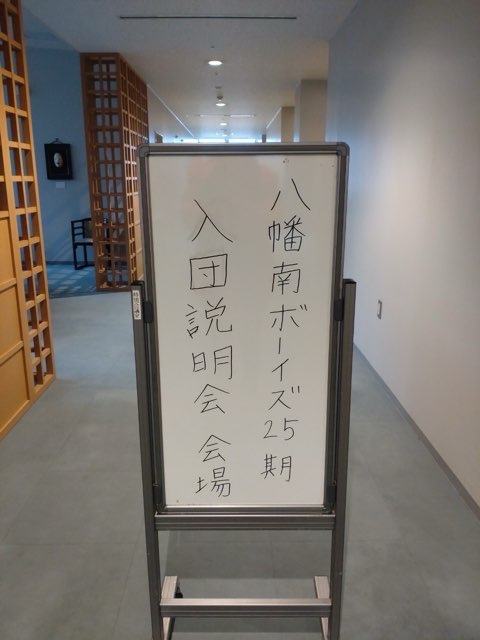 八幡南ボーイズ25期
入団説明会 会場